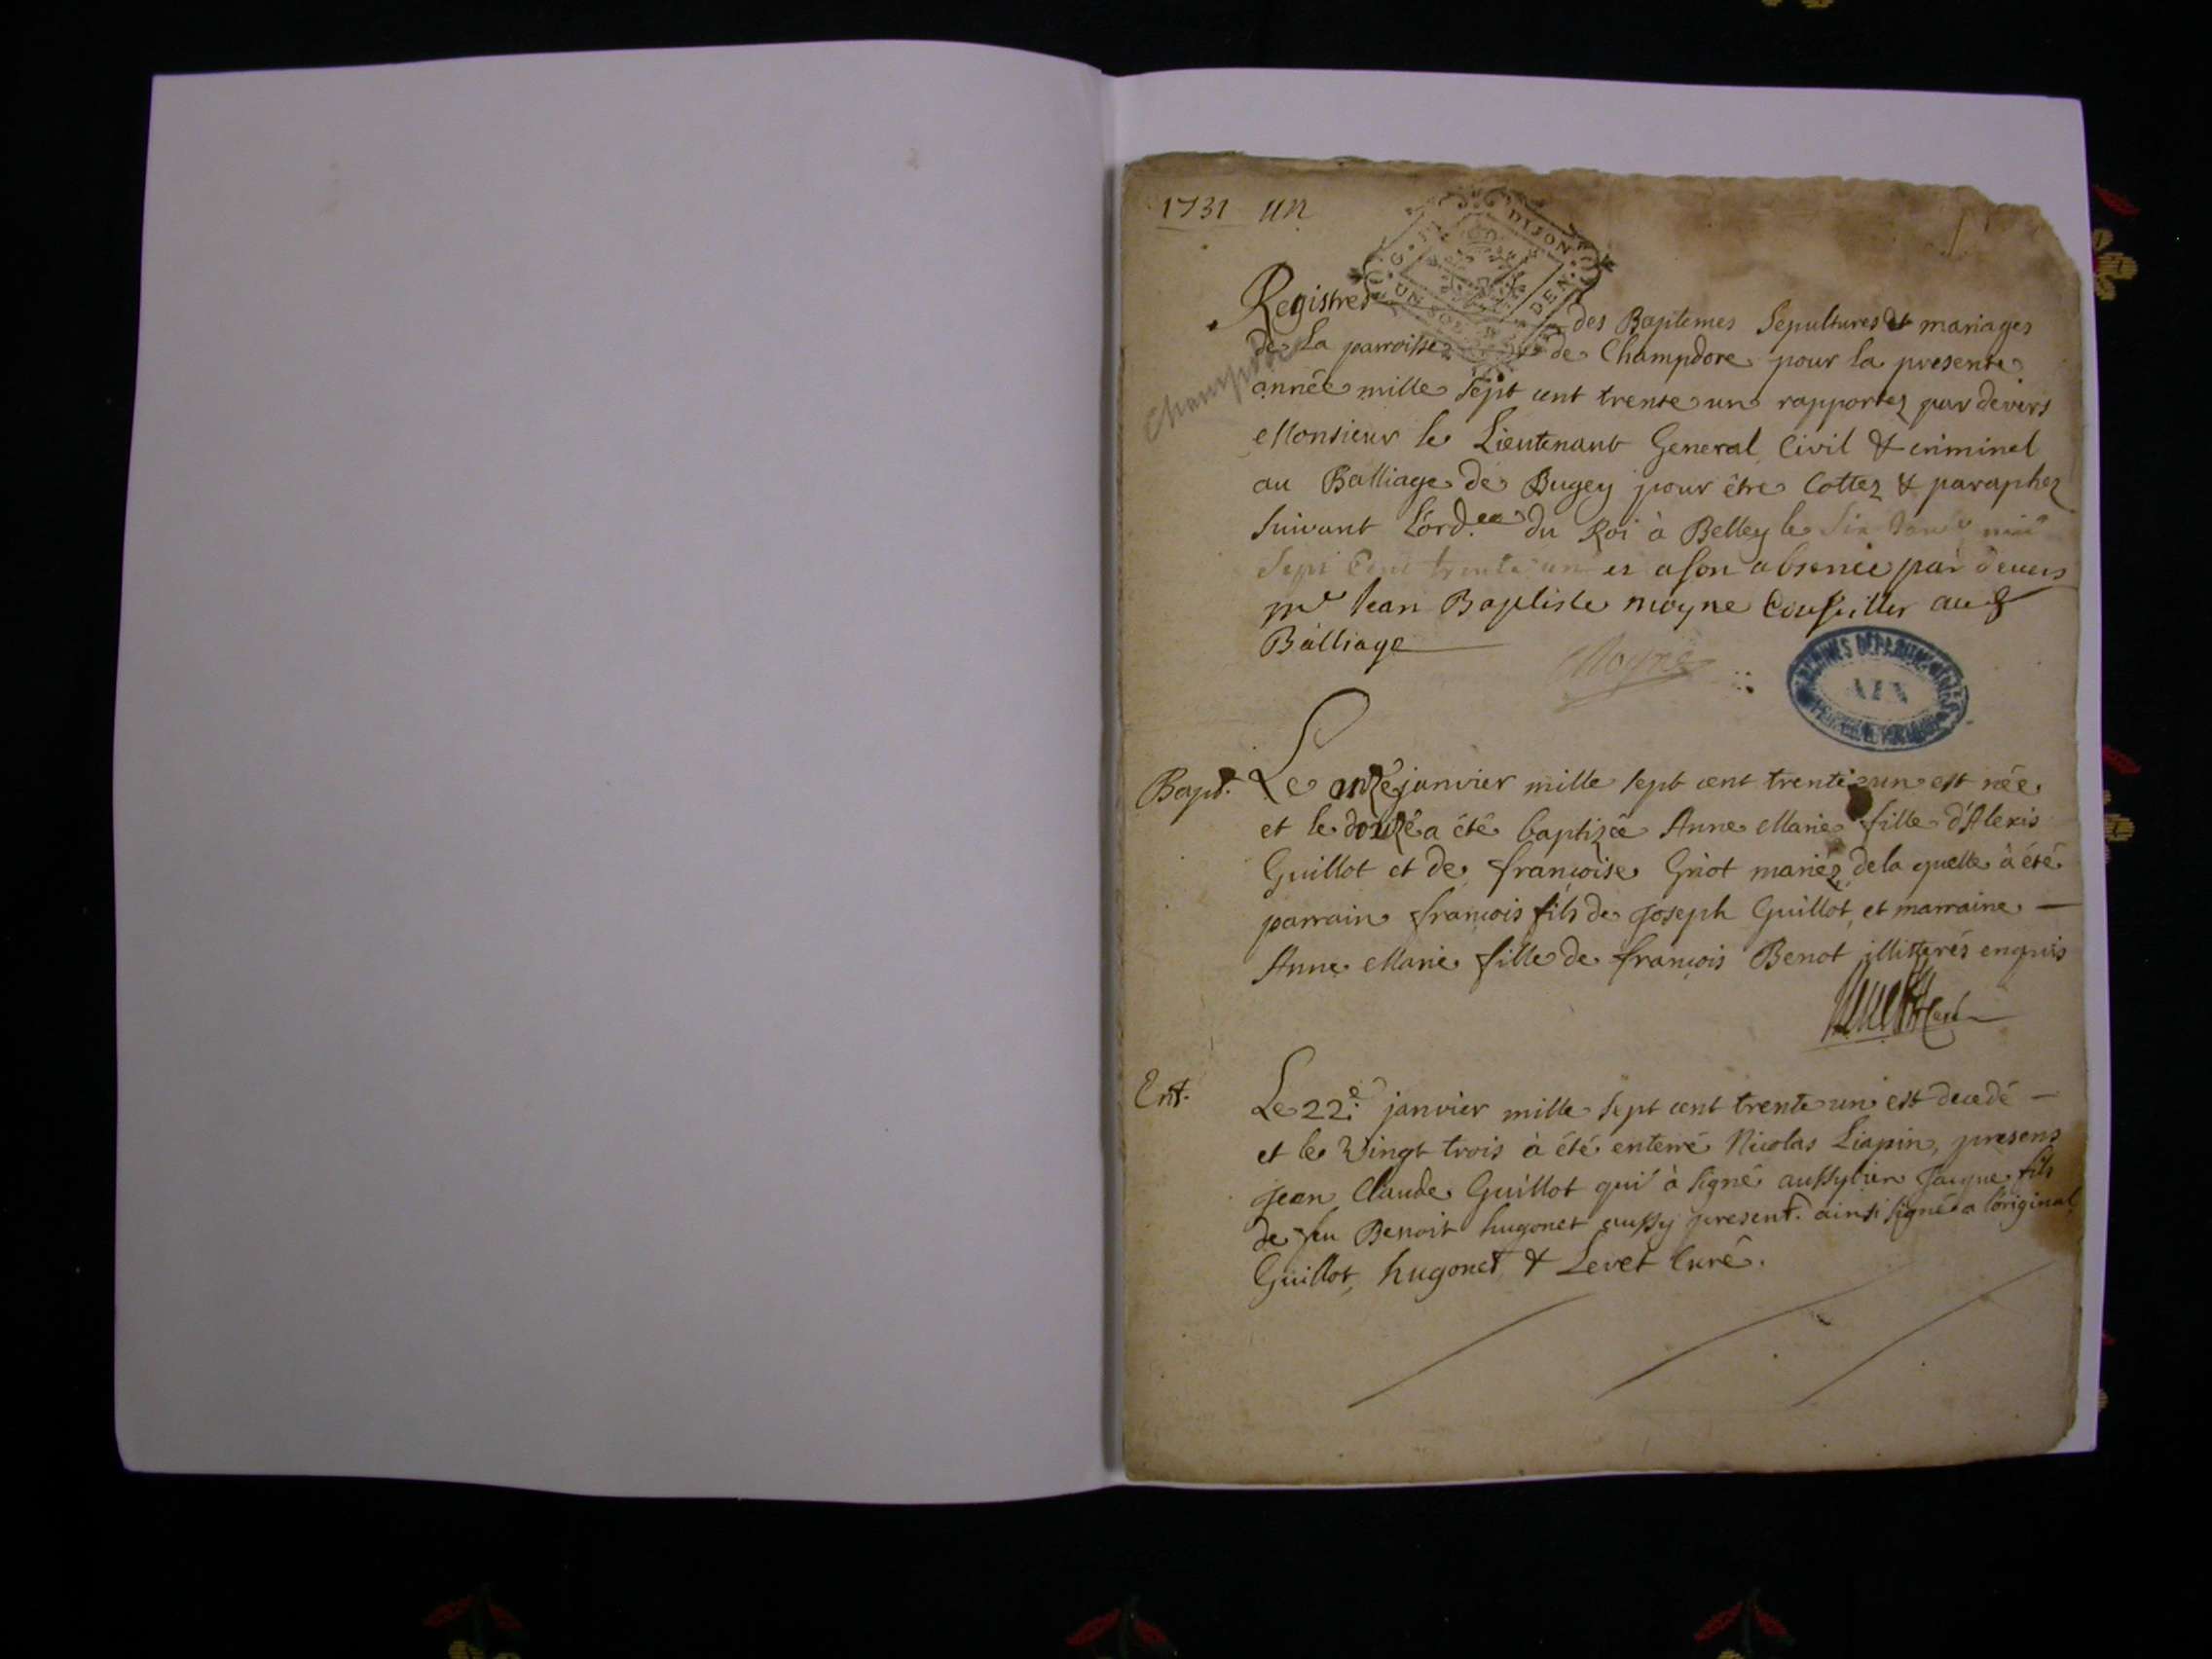 1731 un
DIJON
UN SOL
DEN
Registres des Baptemes Sepultures et mariages
de La parroisse de Champdore pour la presente
année mille sept cent trente un rapportez par devers
Monsieur le Lieutenant General Civil & criminel
au Balliage de Bugey pour être Cottez & paraphez
suivant L'ord.ce du Roi à Belley le six
Sept Cent trente un et a son absence par devers
Mr Jean Baptiste moyne Conseiller aud
Balliage
Moyne
ARCHIVES DEPARTEMENTALES
AIN
Bapt. Le onze janvier mille sept cent trente un est née
et le douze a été baptizée Anne Marie fille d'Alexis
Guillot et de françoise Griot mariez, de la quelle à été
parrain françois fils de Joseph Guillot, et marraine —
Anne Marie fille de françois Benot illitterés enquis
Ent. Le 22.e janvier mille sept cent trente un est decedé —
et le vingt trois à été enterré Nicolas Liapin, presens
jean Claude Guillot qui à signé aussy bien Jacque fils
de feu Benoit hugonet aussy present. ainsi signés a l'original
Guillot, hugonet & Levet Curé.